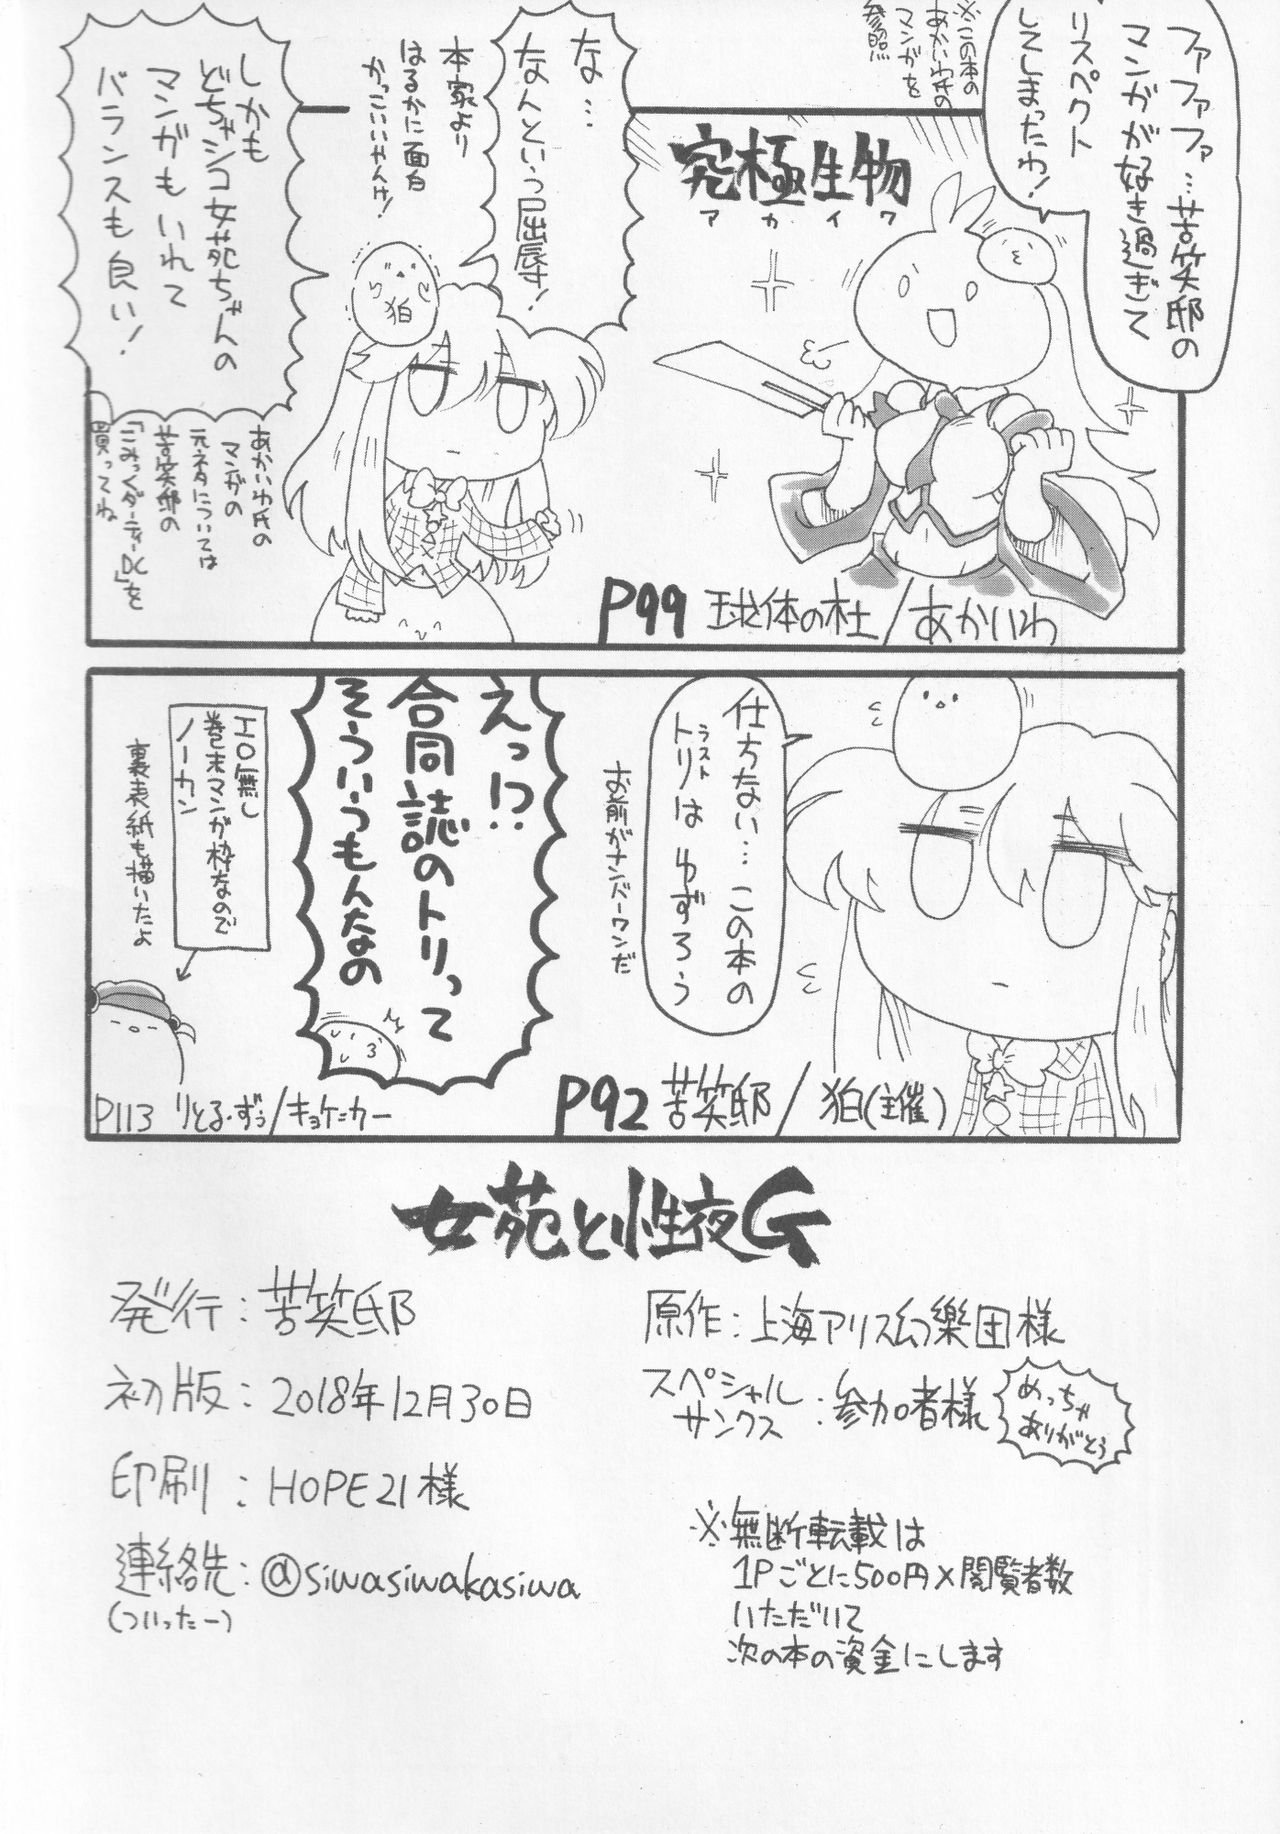 ファファファ…苦笑邸の
マンガが好き過ぎて
リスペクト
してしまったわ!
※この本の
あかいわ氏の
マンガを
参照
究極生物
アカイワ
な…
なんという屈辱!
本家より
はるかに面白
かっこいいやんけ!
しかも
どちゃシコ女苑ちゃんの
マンガもいれて
バランスも良い!
狛
あかいわ氏の
マンガの
元ネタについては
苦笑邸の
「こみっくダーティーDC」を
買ってね
P99 球体の杜/あかいわ
仕方ない…この本の
トリはゆずろう
ラスト
お前がナンバーワンだ
えっ!?
合同誌のトリって
そういうもんなの
エロ無し
巻末マンガ枠なので
ノーカン
裏表紙も描いたよ
P92 苦笑邸/狛(主催)
P113 りとる・ずぅ/キョケニカー
女苑と性夜G
発行:苦笑邸
初版:2018年12月30日
印刷:HOPE21様
連絡先:@siwasiwakasiwa
(ついったー)
原作:上海アリス幻樂団様
スペシャル
サンクス:参加者様
めっちゃ
ありがとう
※無断転載は
1Pごとに500円×閲覧者数
いただいて
次の本の資金にします